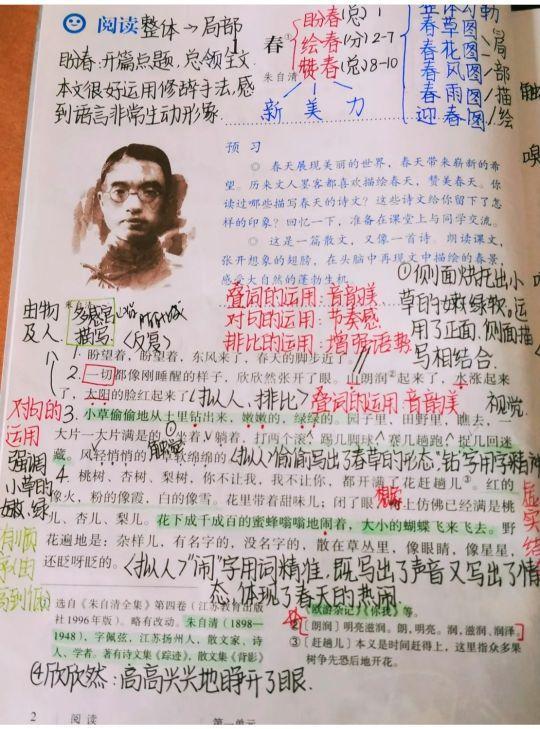 阅读 整体→局部
盼春:开篇点题,总领全文.
本文很好运用修辞手法,感
到语言非常生动形象.
春①
朱自清
盼春(总) 1
绘春(分) 2-7
赞春(总) 8-10
新 美 力
春草图
春花图
春风图
春雨图
迎春图
局
部
描
绘
预 习
◎ 春天展现美丽的世界,春天带来崭新的希
望。历来文人墨客都喜欢描绘春天,赞美春天。你
读过哪些描写春天的诗文?这些诗文给你留下了怎
样的印象?回忆一下,准备在课堂上与同学交流。
◎ 这是一篇散文,又像一首诗。朗读课文,
张开想象的翅膀,在头脑中再现文中描绘的春景,
感受大自然的蓬勃生机。
①侧面烘托出小
草的嫩绿软。运
用了正面、侧面描
写相结合.
叠词的运用:音韵美
对句的运用:节奏感
排比的运用:增强语势
由物
及人
朱自清
多感官
描写
(反复)
1. 盼望着,盼望着,东风来了,春天的脚步近了
2. 一切都像刚睡醒的样子,欣欣然张开了眼。山朗润②起来了,水涨起来
了,太阳的脸红起来了
(拟人、排比)
叠词的运用:音韵美
视觉
对句的
运用
强调
小草的
嫩,绿
3. 小草偷偷地从土里钻出来,嫩嫩的,绿绿的。园子里,田野里,瞧去,一
大片一大片满是的。坐着,躺着,打两个滚,踢几脚球,赛几趟跑,捉几回迷
藏。风轻悄悄的,草软绵绵的
(拟人)"偷偷"写出了春草的形态"钻"字用字精神
4. 桃树、杏树、梨树,你不让我,我不让你,都开满了花赶趟儿③。红的
像火,粉的像霞,白的像雪。花里带着甜味儿;闭了眼,树上仿佛已经满是桃
儿、杏儿、梨儿。花下成千成百的蜜蜂嗡嗡地闹着,大小的蝴蝶飞来飞去。野
花遍地是:杂样儿,有名字的,没名字的,散在草丛里,像眼睛,像星星,
还眨呀眨的。
虚实结
(拟人)"闹"字用词精准,既写出了声音又写出了情
态,体现了春天的热闹.
选自《朱自清全集》第四卷(江苏教育出版
社1996年版)。略有改动。朱自清(1898—
1948),字佩弦,江苏扬州人,散文家、诗
人、学者。著有诗文集《踪迹》,散文集《背影》
《欧游杂记》《你我》等。
② 〔朗润〕明亮滋润。朗,明亮。润,滋润、润泽。
③ 〔赶趟儿〕本义是时间赶得上,这里指众多果
树争先恐后地开花。
④欣欣然:高高兴兴地睁开了眼.
2 阅读 第一单元